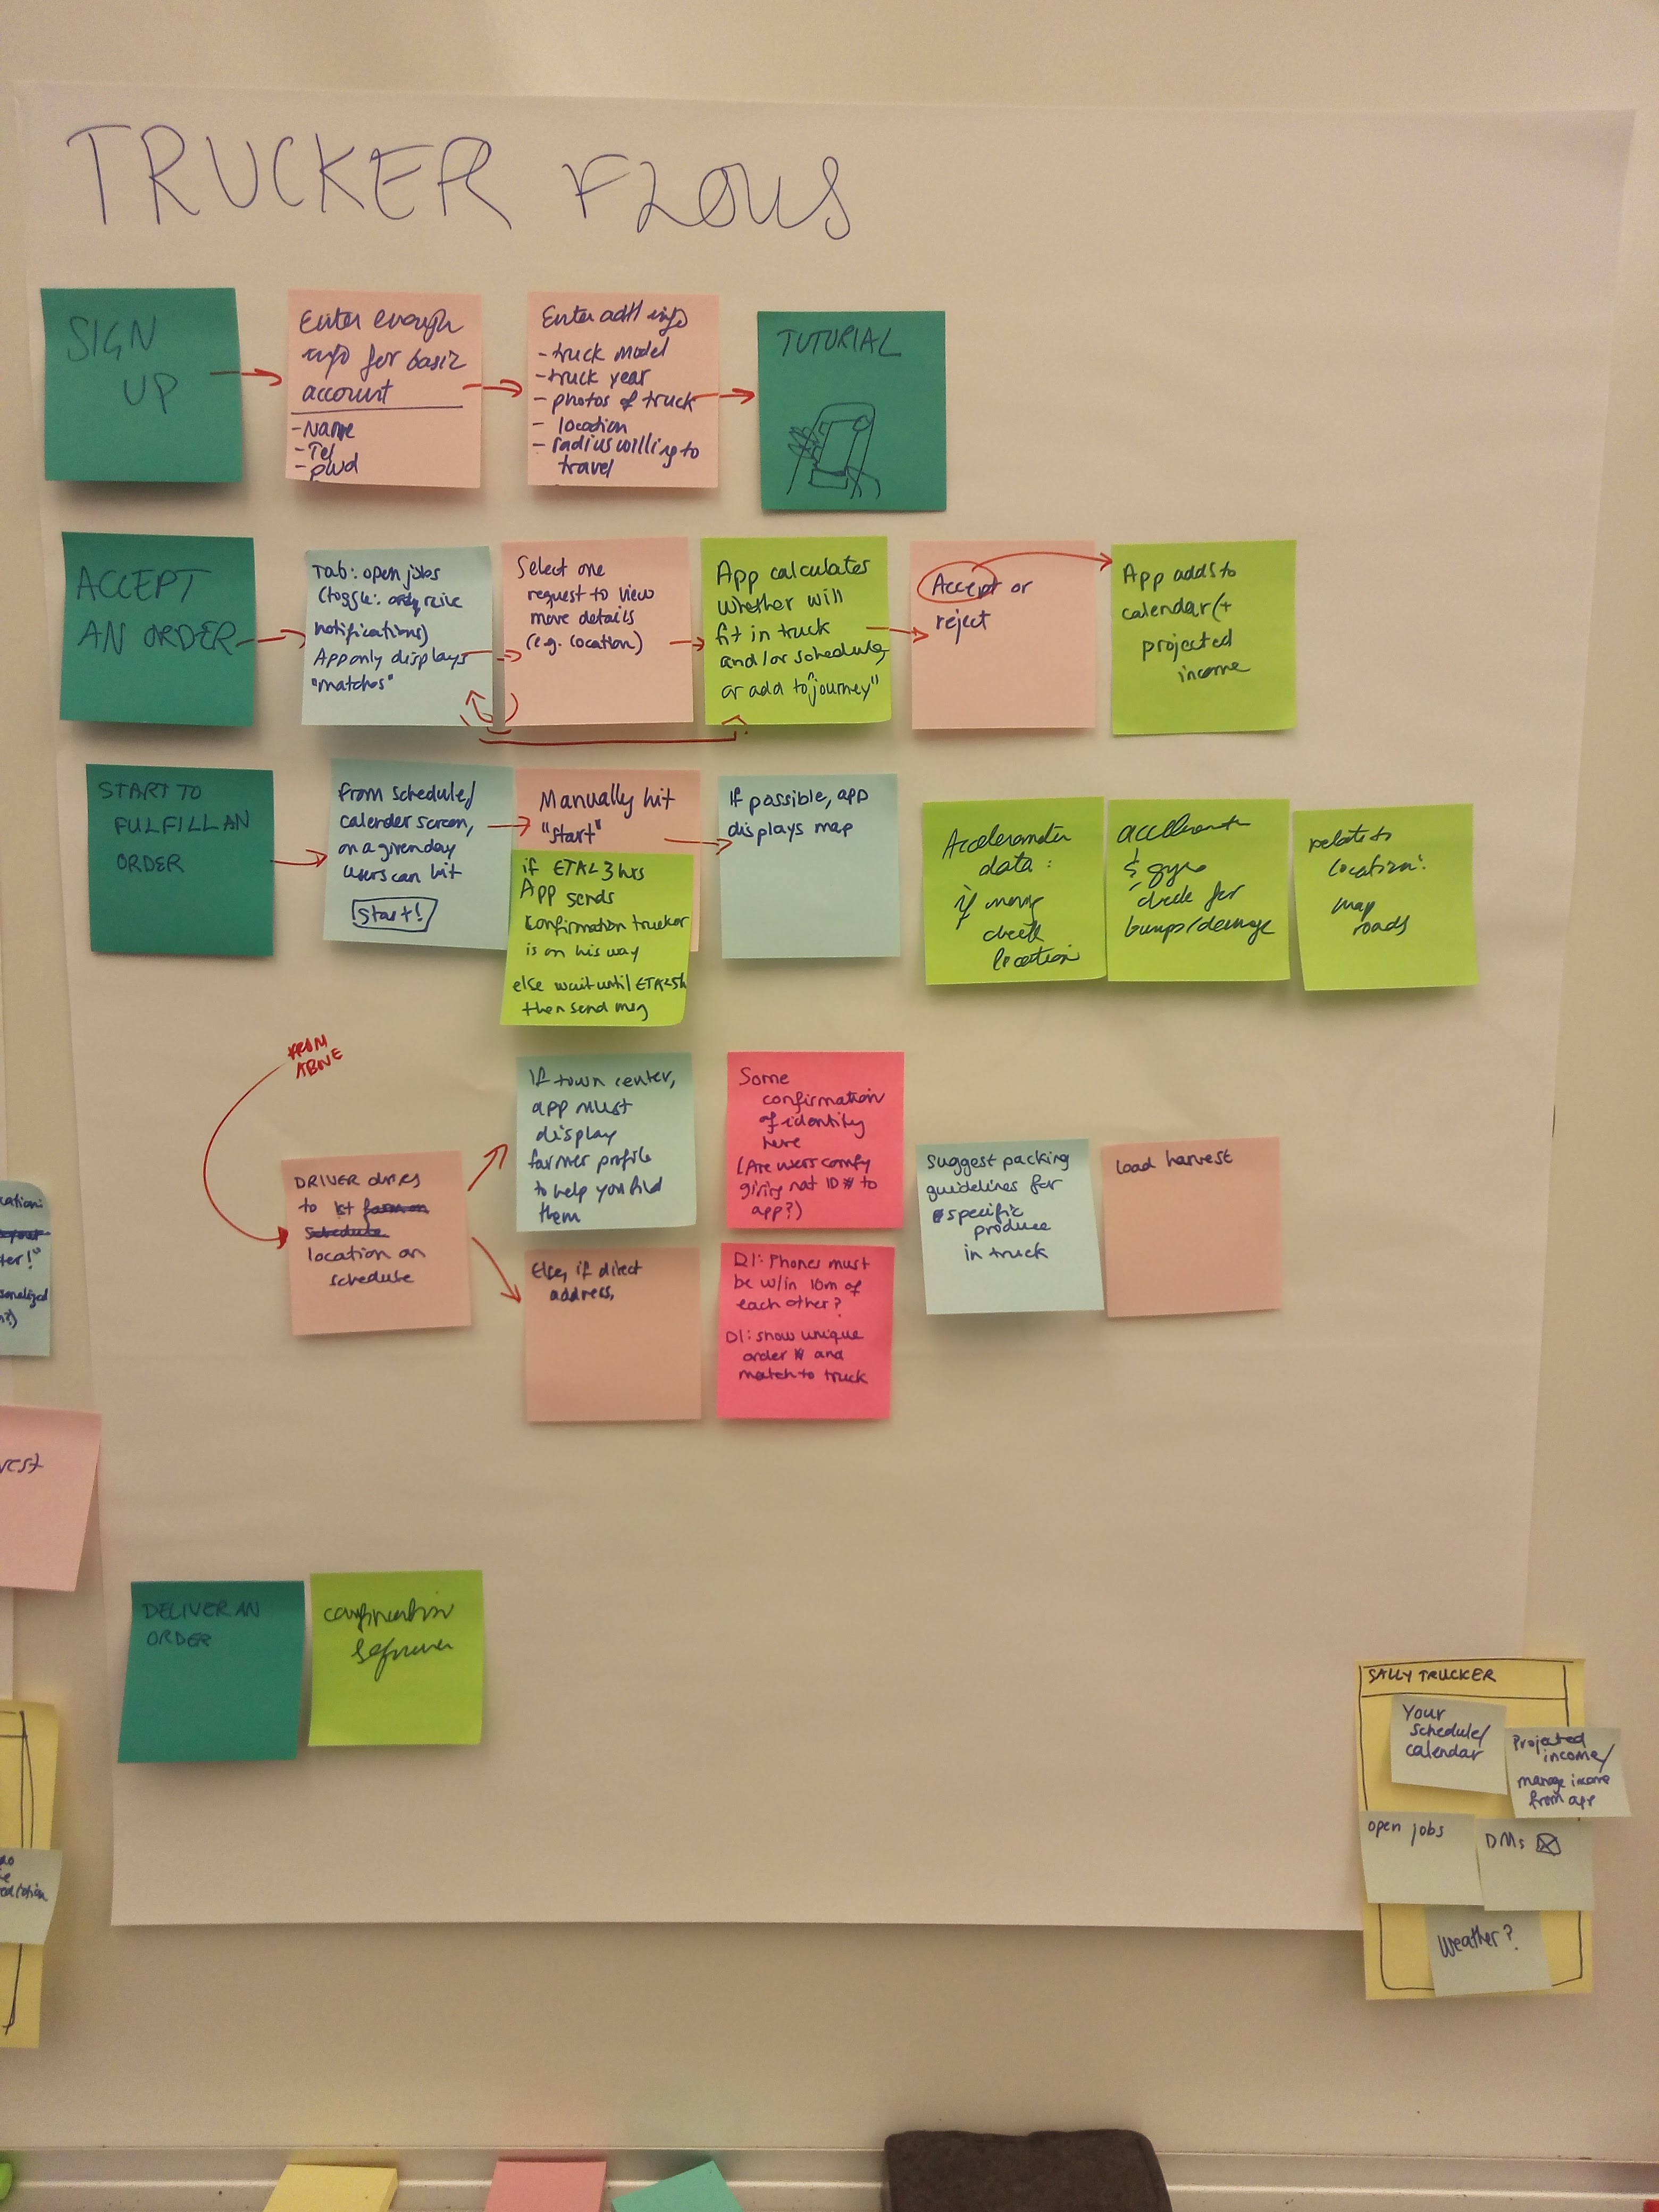 TRUCKER FLOWS
SIGN
UP
Enter enough
info for basic
account
- Name
- Tel
- pwd
Enter add'l info
- truck model
- truck year
- photos of truck
- location
- radius willing to
travel
TUTORIAL
ACCEPT
AN ORDER
Tab: open jobs
(toggle:
notifications)
App only displays
"matches"
Select one
request to view
more details
(e.g. location)
App calculates
whether will
fit in truck
and/or schedule,
or add to "journey"
Accept or
reject
App adds to
calendar (+
projected
income
START TO
FULFILL AN
ORDER
From schedule/
calender screen,
on a given day
users can hit
Start!
Manually hit
"start"
if ETA < 3 hrs
App sends
confirmation trucker
is on his way
else wait until ETA
then send msg
If possible, app
displays map
Accelerometer
data:
if moving
check
location
&
check for
bumps/damage
relate to
location:
map
roads
FROM
ABOVE
DRIVER drives
to 1st farm on
schedule
location on
schedule
If town center,
app must
display
farmer profile
to help you find
them
Else, if direct
address,
Some
confirmation
of identity
here
(Are users comfy
giving nat ID # to
app?)
D1: Phones must
be w/in 10m of
each other?
D1: show unique
order # and
match to truck
suggest packing
guidelines for
specific
produce
in truck
load harvest
DELIVER AN
ORDER
confirmation
SALLY TRUCKER
Your
schedule/
calendar
Projected
income/
manage income
from app
open jobs
DMs
Weather?